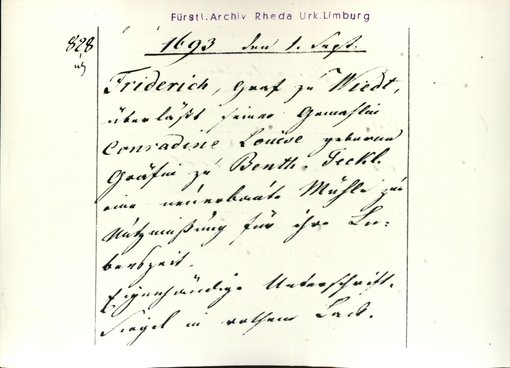 Fürstl. Archiv Rheda Urk. Limburg
828
1693 den 1. Sept.
Friderich, Graf zu Wiedt,
überläßt seiner Gemahlin
Conradine Louise geborene
Gräfin zu Benth. Teckl.
eine neuerbaute Mühle zur
Nutznießung für ihre Le-
benszeit.
Eigenhändige Unterschrift.
Siegel in rothem Lack.